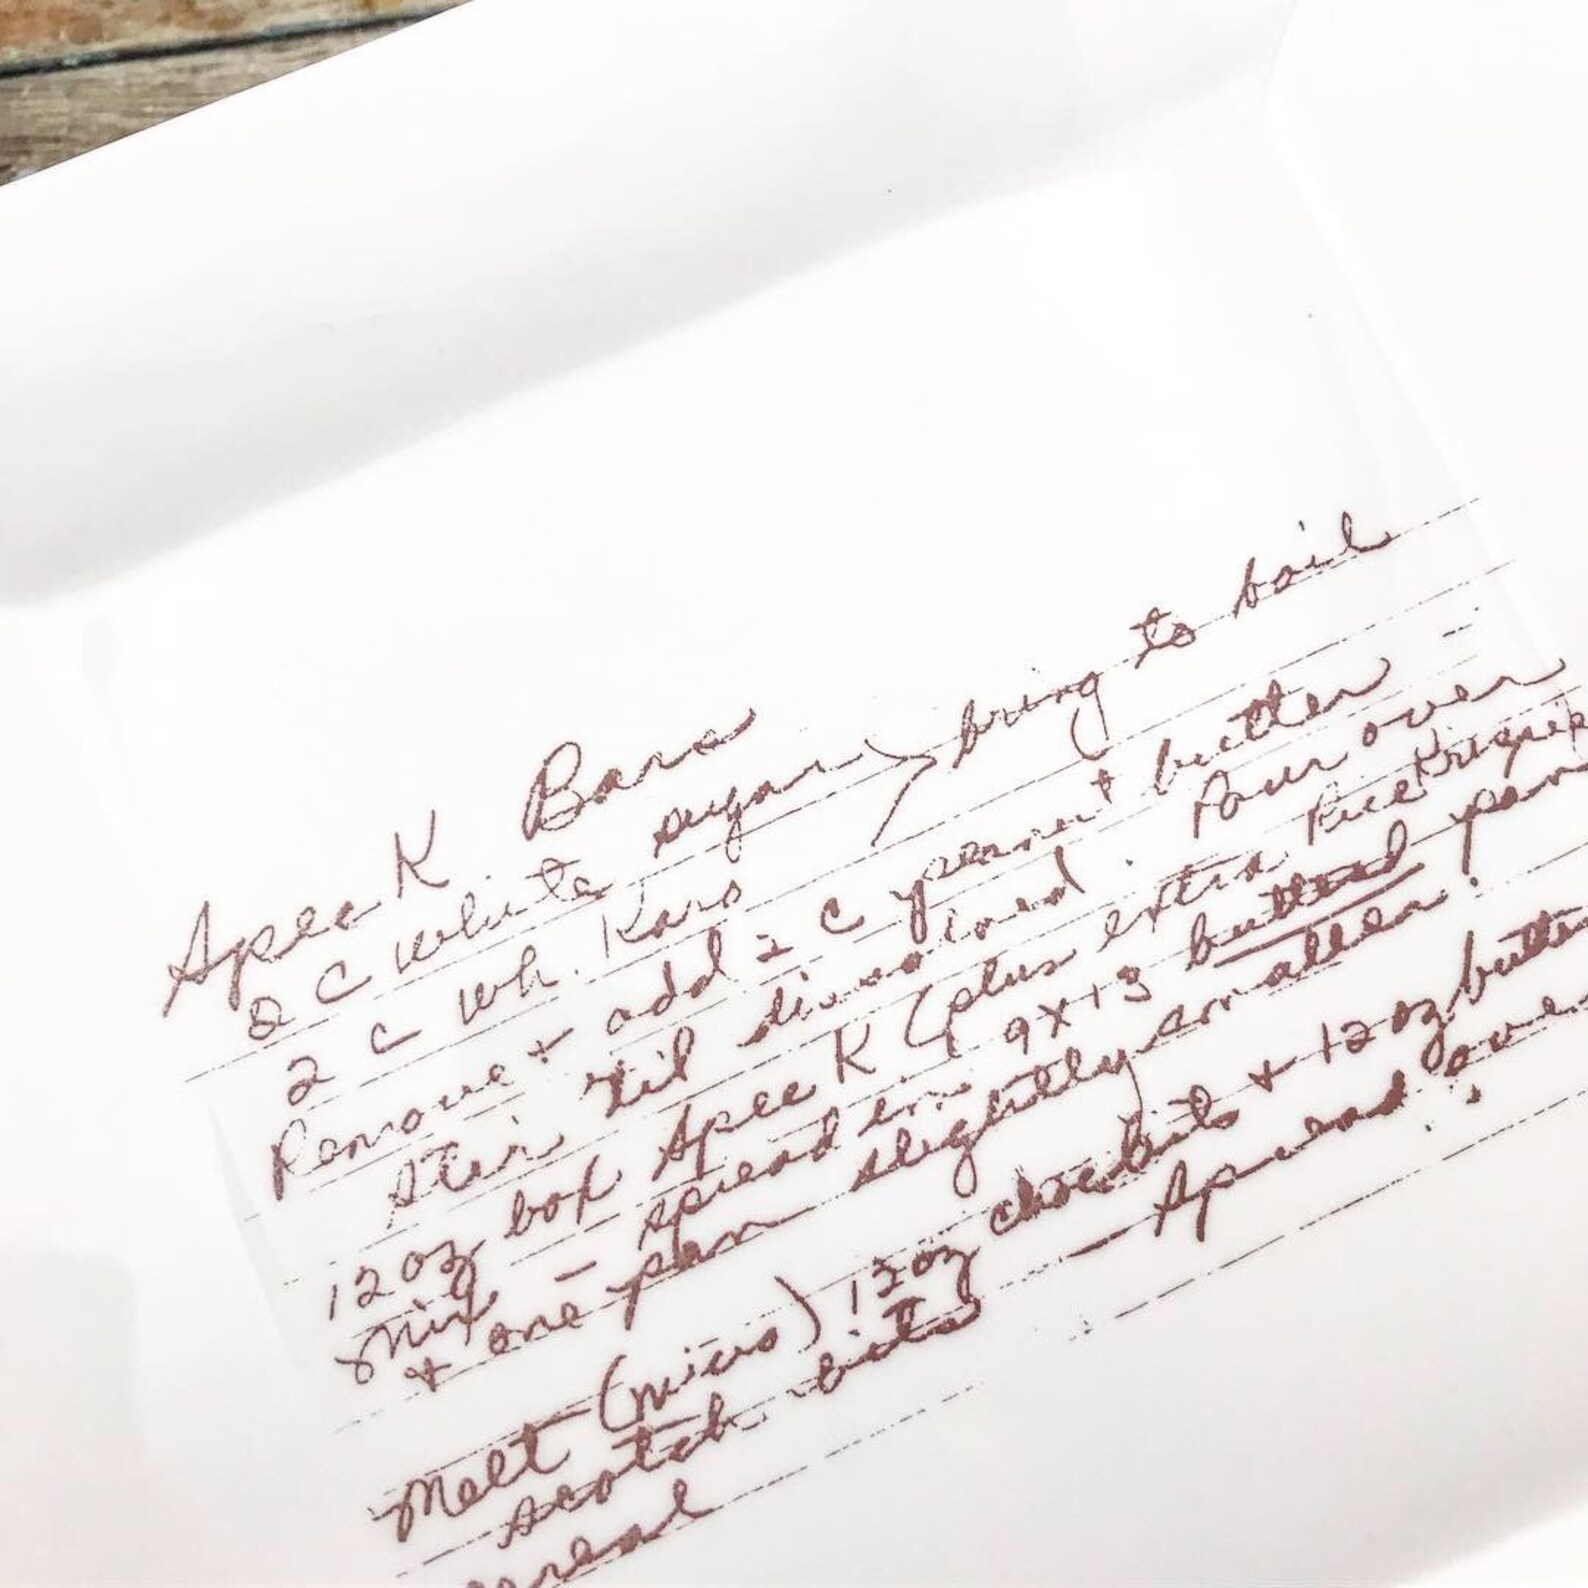 Spec K Bars
2 C white sugar } bring to boil
2 C wh. Karo
Remove + add 2 C peanut butter
Stir til dissolved. Pour over
12 oz box Spec K (plus extra Rice Krispies
Mix - spread in 9x13 buttered pan
+ one pan slightly smaller.
Melt (micro) 12 oz choc bits + 12 oz butter
scotch bits — Spread over
cereal